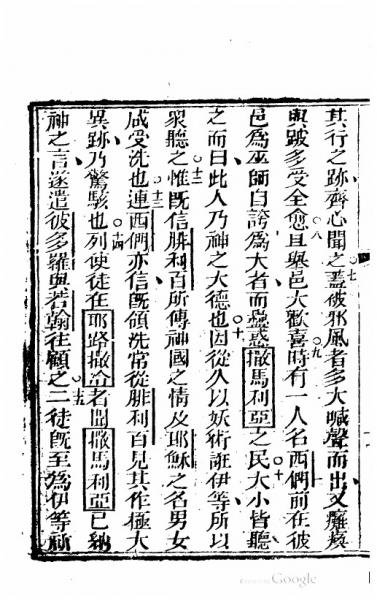 其行之跡齊心聞之蓋被邪風者多大喊聲而出又癱瘓
與跛多受全愈且舉邑大歡喜時有一人名西們前在彼
邑為巫師自誇為大者而蠱惑撒馬利亞之民大小皆聽
之而曰此人乃神之大德也因從久以妖術誑伊等所以
衆聽之惟既信腓利百所傳神國之情及耶穌之名男女
咸受洗也連西們亦信既領洗常從腓利百見其作極大
異跡乃驚駭也列使徒在耶路撒冾者聞撒馬利亞已納
神之言遂遣彼多羅與若翰往顧之二徒既至為伊等祈
Google